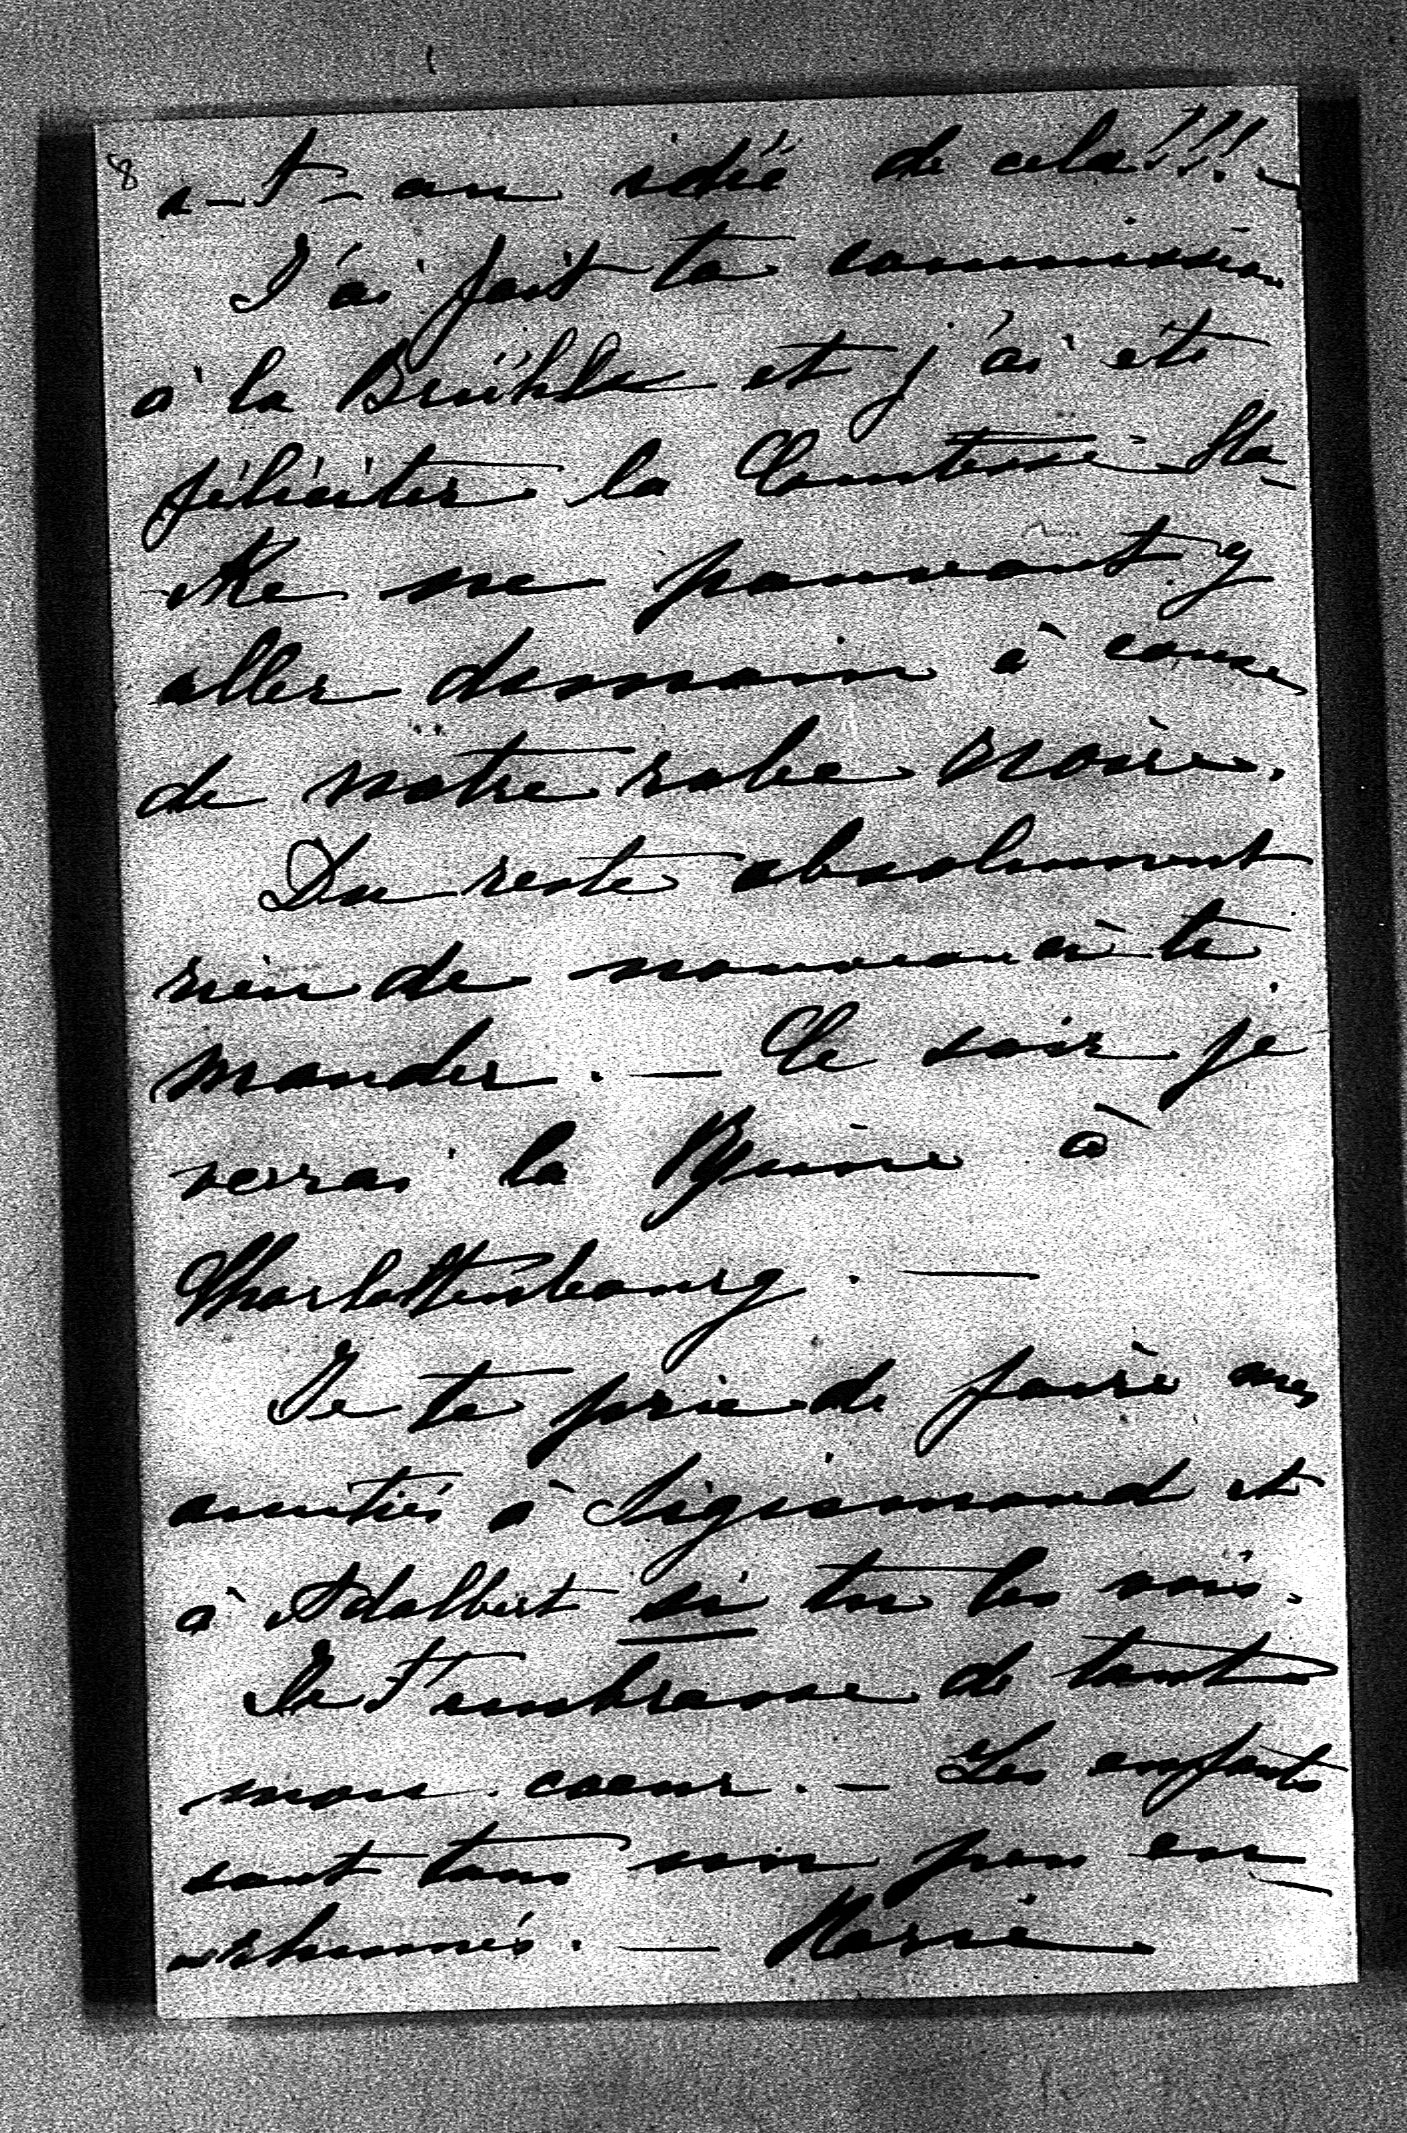 8
a-t-on idée de cela!!! -
J'ai fait ta commission
à la Brühl et j'ai été
féliciter la Comtesse
ne pouvant y
aller demain à cause
de nôtre robe noire.
Du reste absolument
rien de nouveau à te
mander. — Ce soir je
verrai la Reine à
Charlottenbourg. —
Je te prie de faire mes
amitiés à Sigismond et
à Adalbert si tu les vois.
Je t'embrasse de tout
mon coeur. — Les enfants
sont tous un peu en-
rhumés. — Marie